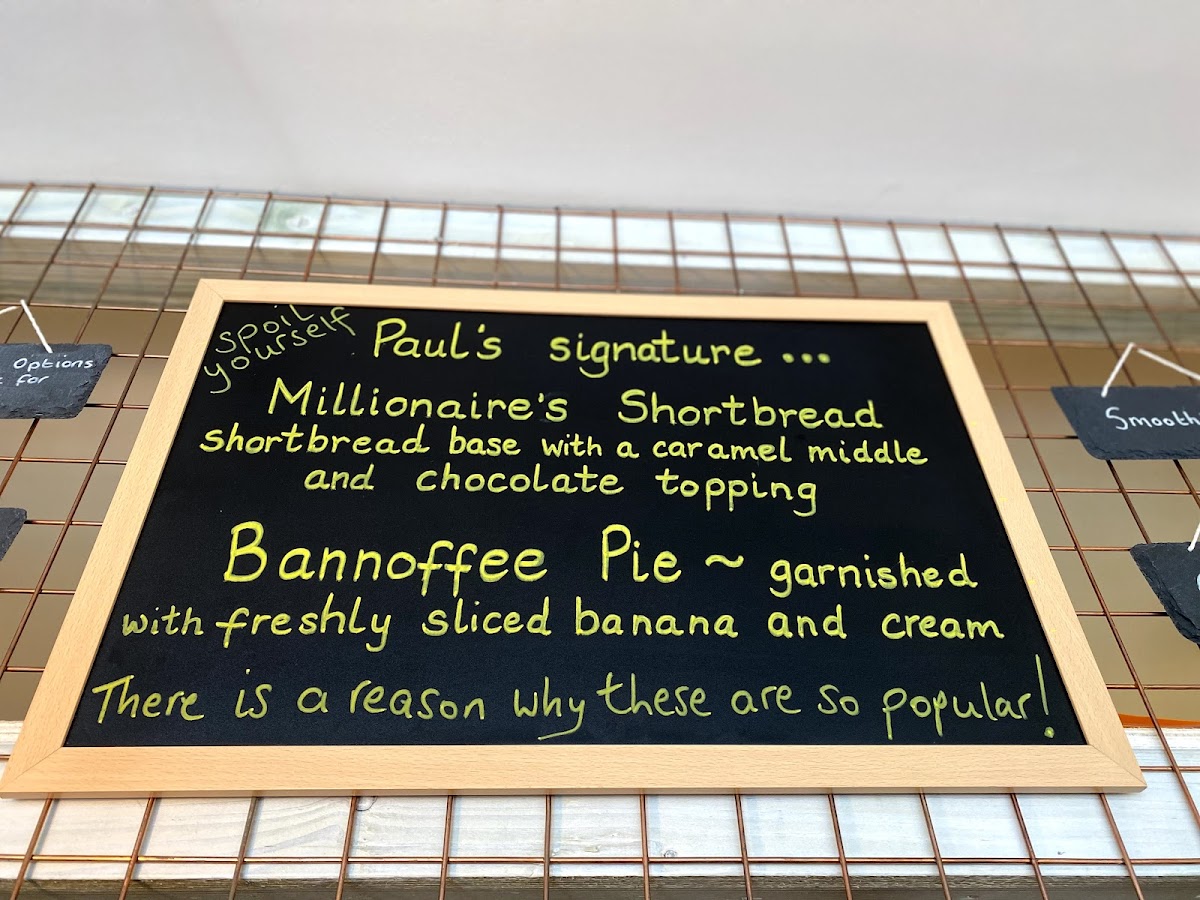 Spoil
yourself
Paul's signature ...
Millionaire's Shortbread
shortbread base with a caramel middle
and chocolate topping
Bannoffee Pie ~ garnished
with freshly sliced banana and cream
There is a reason why these are so popular!
Options
for
Smooth